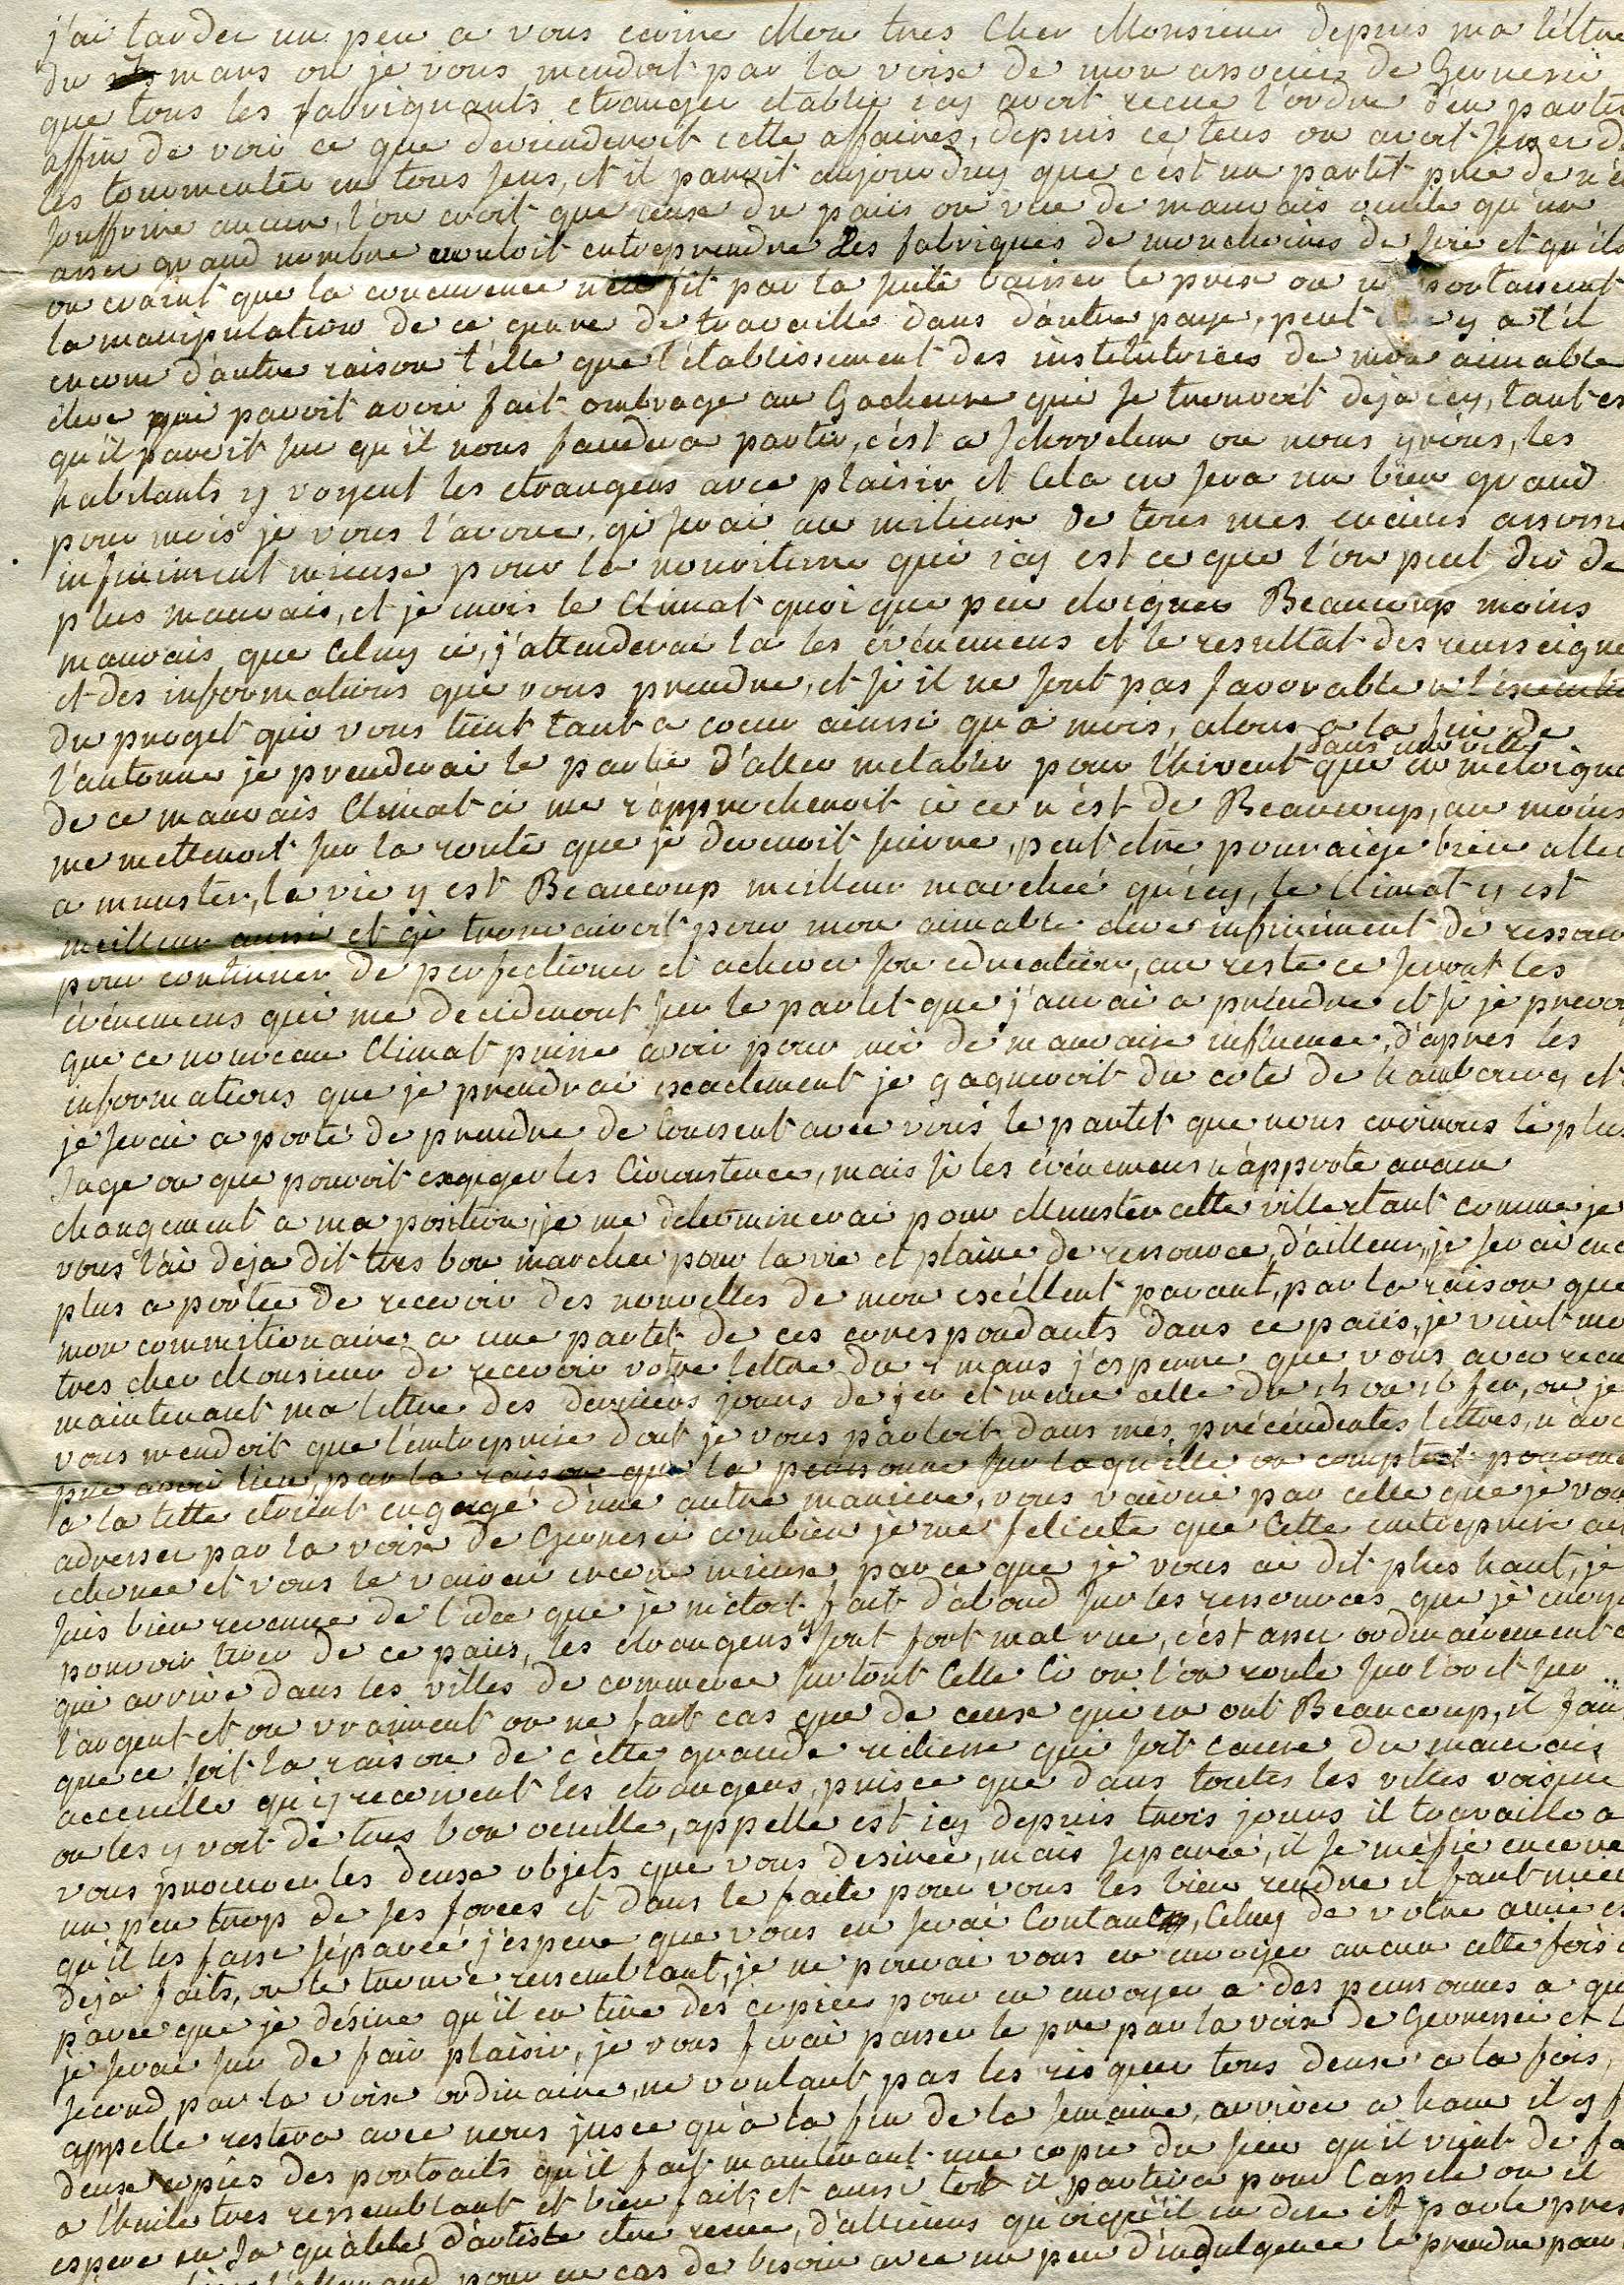 j'ai tarder un peu a vous ecrire Mon tres Cher Monsieur depuis ma léttre
du mars ou je vous mendoit par la voix de mon associez de Gernesei
que tous les fabriquants etranger etablie icy avoit recue l'ordre d'en partir
affin de voir ce que deviendenoit cette affaires, depuis ce tems on avoit
les tourmenter en tous sens, et il paroit aujourdhuy que c'est un partit prie de n'en
souffrire aucun, l'on croit que ceux du païis on vue de mauvais oeuile qu'un
asser grand nombre vouloit entreprendre des fabriques de de soie et qu'ils
on craint que la concurence n'en fit par la suite baisser le prix ou n' portassent
la manipulation de ce genre de travaille dans d'autre paye, peut être y a t'il
encore d'autre raison t'elle que l'établissement des institutrices de mon aimable
eleve qui paroit avoir fait ombrage au Gacheuse qui se trouvoit deja icy, tant est
qu'il paroit sur qu'il nous faudera partir, c'est a où nous yrions, les
habitants y voyent les etrangers avec plaisir et Cela en sera un bien grand
pour mois je vous l'avoue, qi serai au milieux de tous mes enciens associes
infiniment mieux pour la nouriture qui icy est ce que l'on peut dir de
plus mauvais, et je crois le Climat quoi que peu eloigner Beaucoup moins
mauvais que Celuy ci, j'attenderai la les événemens et le resultat des renseigne
et des informations que vous prendre, et si il ne sont pas favorable a l'éxecution
du proget qui vous tient tant a coeur ainsi qu'a mois, alors a la fin de
l'automne je prenderai le partie d'aller m'etablir pour l'hivert dans une ville que en m'eloignant
de ce mauvais Climat ci me rapprocheroit si ce n'ést de Beaucoup, au moins
me metteroit sur la route que je deveroit suivre, peut etre pouraige bien aller
a munster, la vie y est Beaucoup meilleur marcheé qu'icy, le Climat y est
meilleur aussi et qi trouverait pour mon aimable eleve infiniment de ressource
pour continuer de perfectioner et achever son education, au reste ce seront les
événemens qui me decideront sur le partit que j'aurai a prendre et si je prevois
que ce nouveau Climat puisse avoir pour moi de mauvaise influence, d'apres les
informations que je prendrai exactement je gagneroit du coté de hambourg et
je serai a porté de prendre de Consert avec vous le partit que nous croirons le plus
Sage ou que pouroit exgiger les Circonstence, mais si les événemens n'apporte aucun
changement a ma position, je me determinerai pour Munster cette ville etant comme je
vous l'ai deja dit tres bon marchee pour la vie et plaine de ressource, d'ailleur, je serai encor
plus a portée de recevoir des nouvelles de mon excéllent parant, par la raison que
mon commitionaire a une partit de ces corespondants dans ce païis, je vient mon
tres cher Monsieur de recevoir votre lettre du mars j'esperre que vous avez recu
maintenant ma lettre des derniers jours de jer et meme celle du 15 ou 16 fer, ou je
vous mendoit que l'entreprise dont je vous parloit dans mes précédentes lettres, n'avoit
pue avoir lieu, par la raison que la personne sur laquélle on comptoit pour
a la tette etoient engagé d'une autre maniere, vous vairaie par celle que je vous
adresser par la voix de Gernesei combien je me felicite que Cette entreprise ai
echouee et vous le vairai encore mieux par ce que je vous ai dit plus haut, je
suis bien revenue de l'idee que je m'etoit fait d'abord sur les ressources que je croyoit
pouvoir tirer de ce païis, les etrangers y sont fort mal vue, c'est asser ordinairement ce
qui arrive dans les villes de commerce surtout Celle Ci ou l'on roule sur l'or et sur
l'argent et ou vraiment on ne fait cas que de ceux qui en ont Beaucoup, il faut
que ce soit la raison de cette grande richesse qui soit cause du mauvais
acceuille qu'y recoivent les etrangers, puisce que dans toutes les villes voisine
on les y voit de tres bon oeuille, appelle est icy depuis trois jours il travaille a
vous procurer les deux objets que vous desiree, mais separée, il se mefie encore
un peu trop de ses forces et dans le faite pour vous les bien rendre il faut mieux
qu'il les fasse separée j'espere que vous en serai Contant, Celuy de votre amie est
deja faits, on le trouve ressemblant, je ne pourai vous en envoyer aucun cette fois ci
parce que je désire qu'il en tire des copiee pour en envoyer a des personnes a qui
je serai sur de fair plaisir, je vous ferai passer le pre par la voix de Gernesei et le
second par la voix ordinaire, ne voulant pas les risquer tous deux a la fois,
appelle restera avec nous jusce qu'a la fin de la semaine, arriver a ham il y f
deux copies des portraits qu'il fait maintenant une copie du sien qu'il vient de fair
a l'huile tres ressemblant et bien fait, et aussi tot il partira pour Cassele ou il
espere en sa qualité d'artiste etre recue, d'allieurs quoiqu'il en dise il parle pres
pour en cas de besoin avec un peu d'indulgence le prendre pour